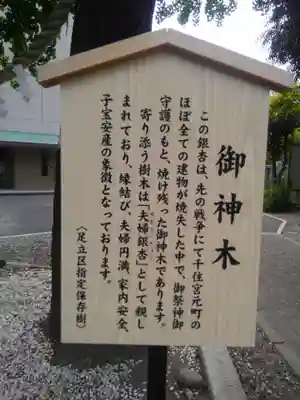 御神木
この銀杏は、先の戦争にて千住宮元町の
ほぼ全ての建物が焼失した中で、御祭神御
守護のもと、焼け残った御神木であります。
寄り添う樹木は「夫婦銀杏」として親し
まれており、縁結び、夫婦円満、家内安全、
子宝安産の象徴となっております。
（足立区指定保存樹）